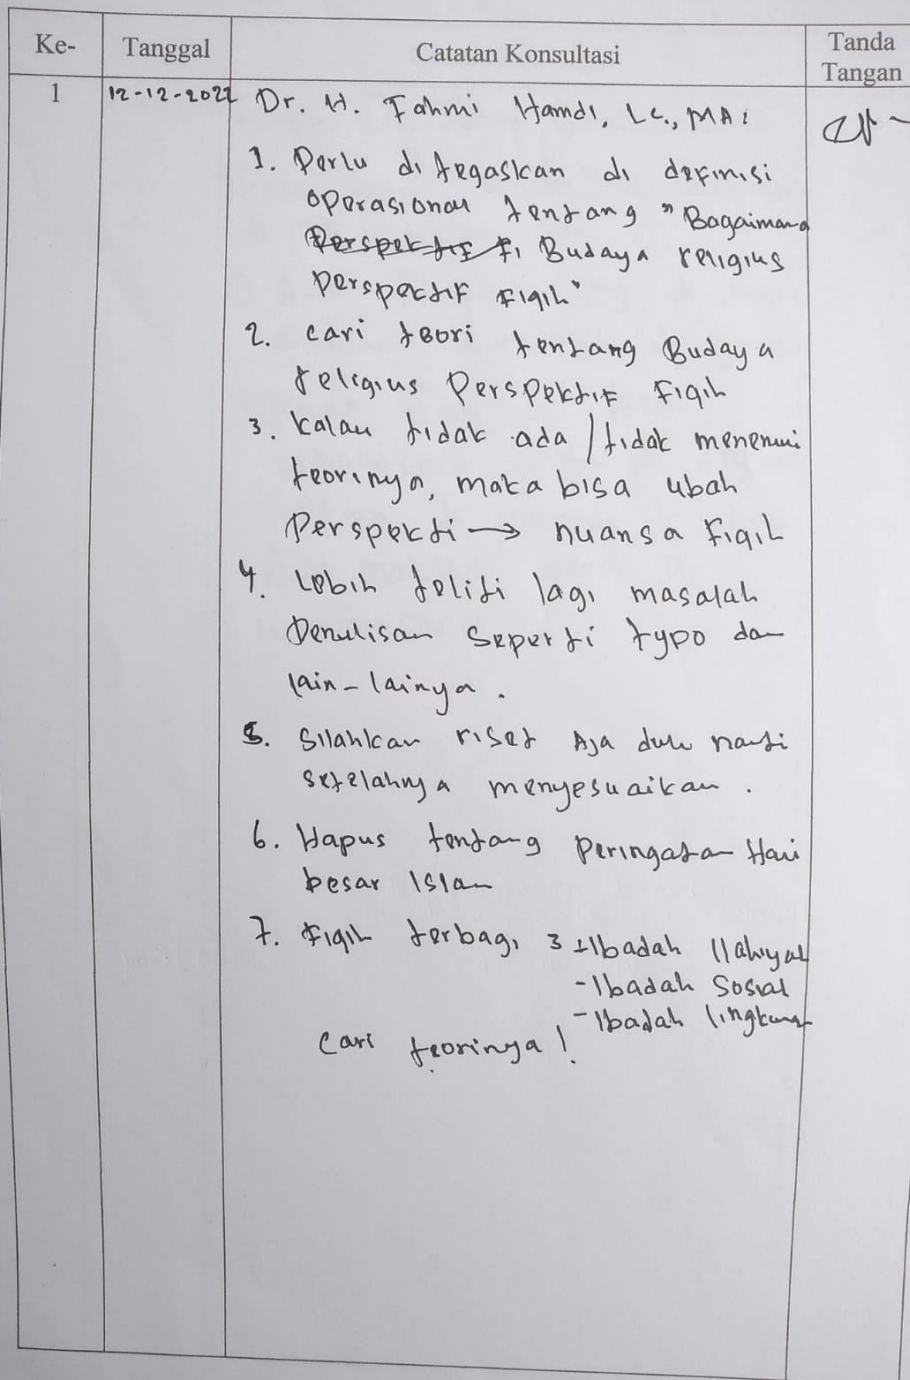 Ke-
Tanggal
Catatan Konsultasi
Tanda
Tangan
1
12-12-2022
Dr. H. Fahmi Hamdi, Lc., MA :
1. Perlu di tegaskan di definisi
operasional tentang "Bagaimana
Perspektif Fi Budaya religius
perspektif Fiqih"
2. cari teori tentang Budaya
religius Perspektif Fiqih
3. kalau tidak ada / tidak menemui
teorinya, maka bisa ubah
Perspekti → nuansa Fiqih
4. Lebih teliti lagi masalah
Penulisan seperti typo dan
lain-lainya.
5. Silahkan riset Aja dulu nanti
setelahnya menyesuaikan.
6. Hapus tentang Peringatan Hari
besar Islam
7. Fiqih terbagi 3 - Ibadah Ilahiyah
- Ibadah Sosial
- Ibadah lingkungan
Cari teorinya !